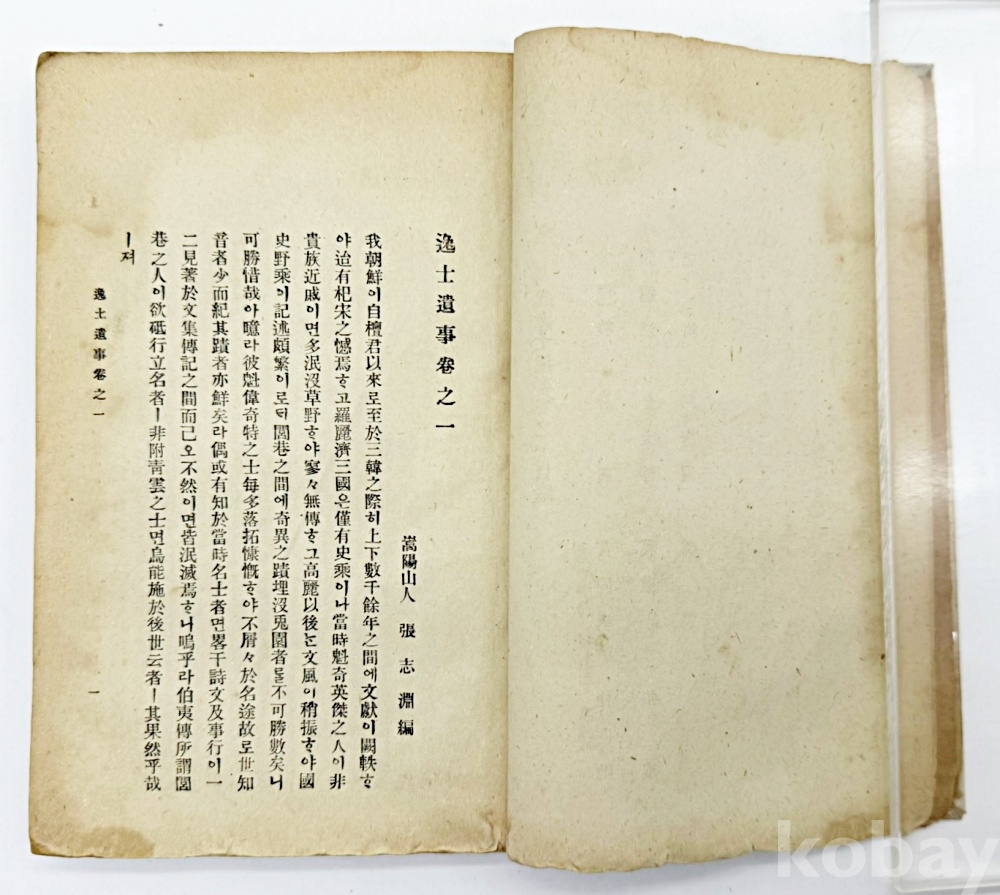 逸士遺事卷之一
嵩陽山人 張志淵編
我朝鮮이自檀君以來로至於三韓之際히上下數千餘年之間에文獻이闕軼ᄒ
야迨有杞宋之憾焉ᄒ고羅麗濟三國은僅有史乘이나當時魁奇英傑之人이非
貴族近戚이면多泯沒草野ᄒ야寥々無傳ᄒ고高麗以後는文風이稍振ᄒ야國
史野乘이記述頗繁이로되閭巷之間에奇異之蹟埋沒兎園者를不可勝數矣니
可勝惜哉아噫라彼魁偉奇特之士每多落拓慷慨ᄒ야不屑々於名途故로世知
昔者少而紀其蹟者亦鮮矣라偶或有知於當時名士者면畧干詩文及事行이一
二見著於文集傳記之間而已오不然이면皆泯滅焉ᄒ나니嗚乎라伯夷傳所謂閭
巷之人이欲砥行立名者ㅣ非附青雲之士면烏能施於後世云者ㅣ其果然乎哉
ㅣ져
逸士遺事卷之一
一
kobay